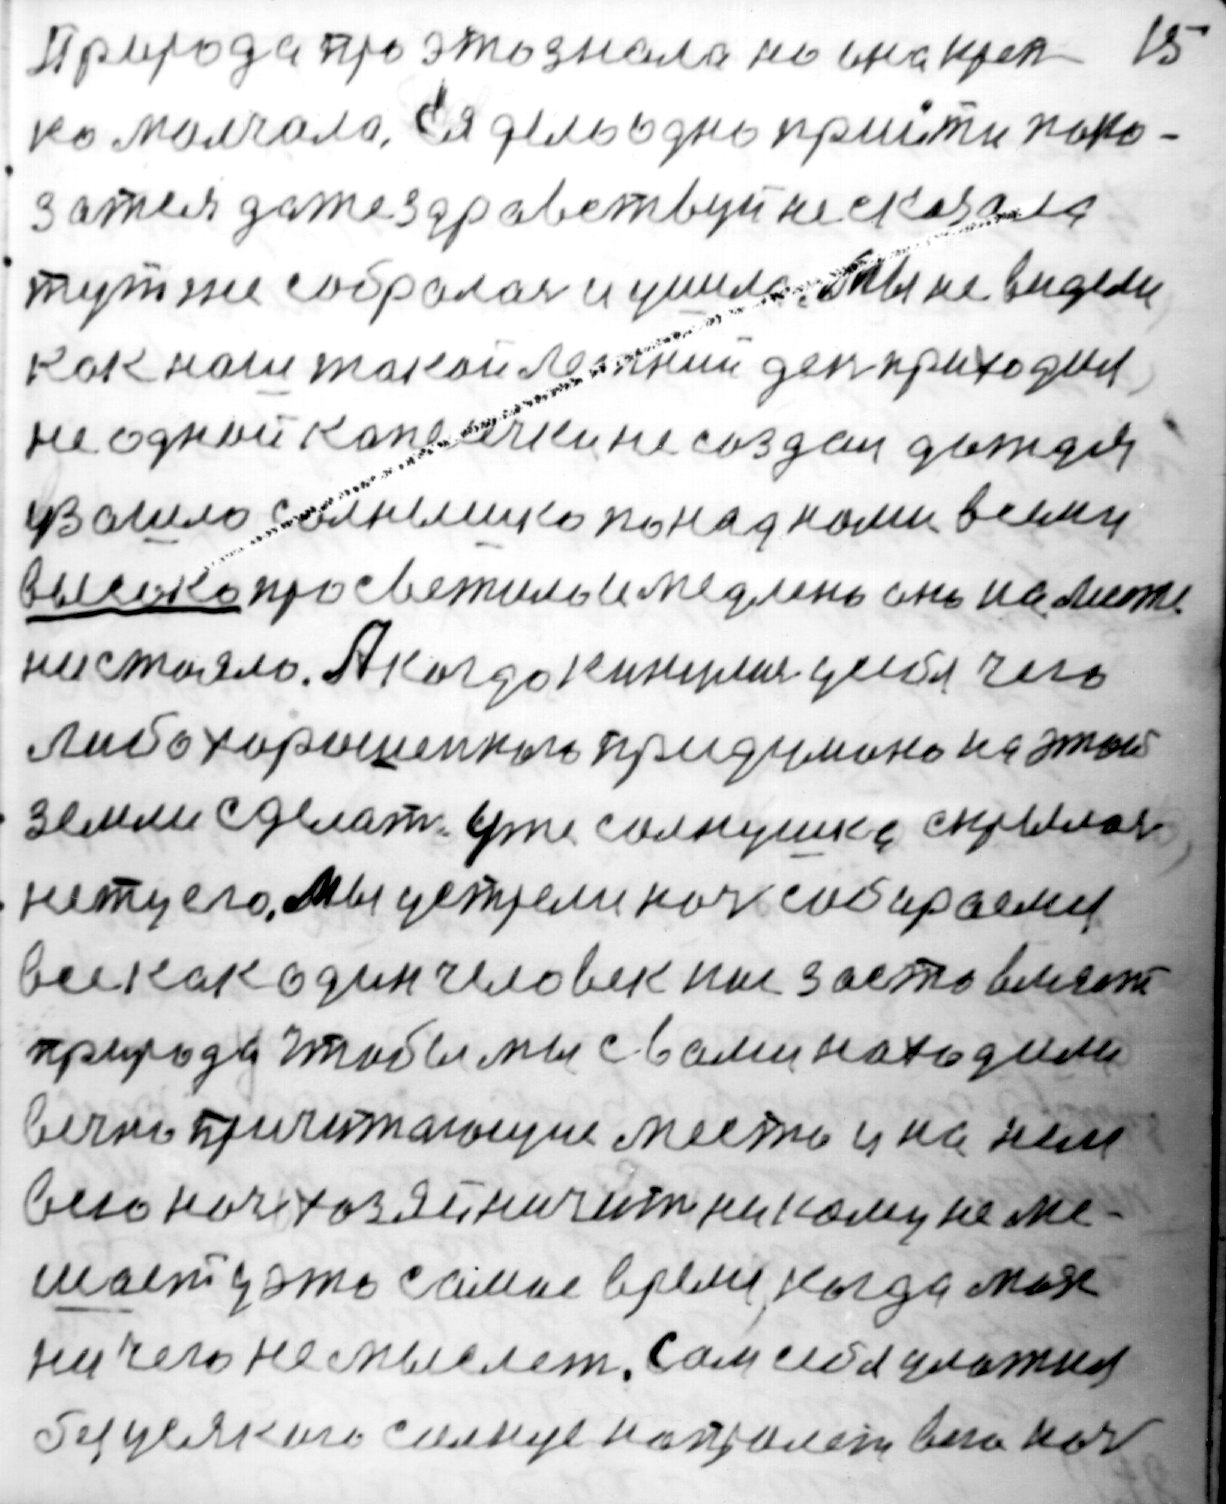 Природа про это знала но она креп- 15
ко молчала. Ея дело одно прийти пока-
затся даже здравствуй не сказала
тут же собралас и ушила. Мы не видели
как наш такой летний ден приходил,
не одной капелички не создал дождя
узашло солнышко понад нами всеми
высоко просветило и медлено оно на месте
не стояло. А когда кинулис у себя чего
либо хорошенького придумано на этой
земли сделат. Уже солнушка скрылас,
нету его. Мы устрели ноч собираеми
все как один человек нас заставляет
природа чтобы мы с вами находили
вечно причитающие место и на нем
всю ноч хозяйничит никому не ме-
шает у это самое время, когда мозг
ничего не мыслет. Сам себя уложил
без усякого солнце напролет всю ноч